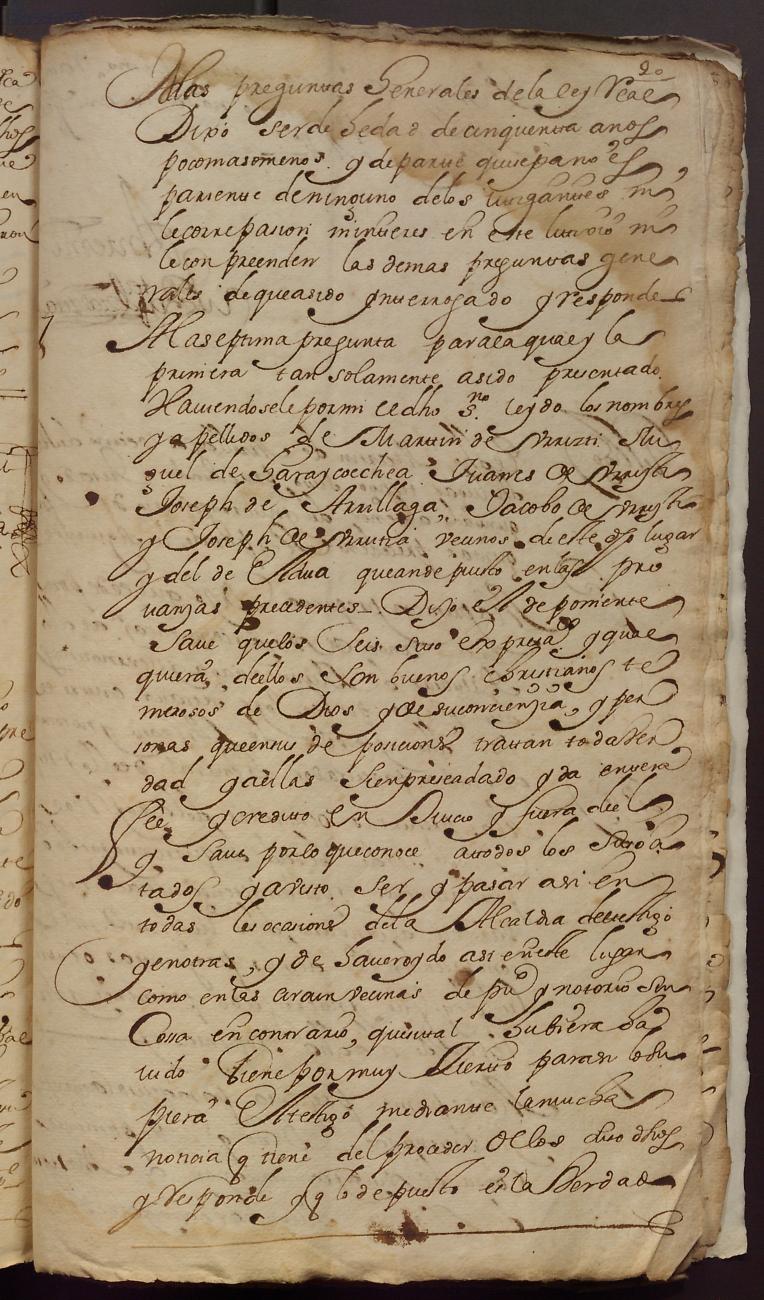 20
Alas preguntas Generales de la ley Real
Dixo ser de hedad de cinquenta anos
poco mas o menos. y de parte que es
pariente de ninguno de los litigantes ni
le corre pasion ni interes en este ni
le conpreenden las demas preguntas gene
rales de que a sido ynterrogado y responde
A la septima pregunta para la qual y la
primera tan solamente a sido presentado
Haviendosele por mi el dho s.no leydo los nombres
y apellidos de Martin de Mi
guel de Garaycoechea, Juanes de
Joseph de Arrillaga, Jacobo de
y Joseph de Urrutia vecinos de este dho lugar
y del de que an depuesto en las pro
vanzas precedentes Dijo el deponiente
save que los seis suso expresados y qual
quiera de ellos son buenos christianos te
merosos de Dios y de su conzienzia, y per
sonas que en sus deposiciones trattan toda ver
dad y a ellas sienpre se a dado y da entera
fee y credito en Juicio y fuera de el
y save por lo que conoce a todos los
tados y a visto ser y pasar asi en
todas las ocasiones de la Alcaldia del testigo
y en otras, y de haver oydo asi en este lugar
como en las circunvecinas de pu.co y notorio sin
Cosa en contrario, que si tal hubiera ha
vido tiene por muy cierto para si lo su
piera el testigo mediante la mucha
noticia q tiene del proceder de los dhos
y responde y q lo depuesto es la Berdad